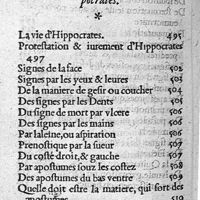 pocrates.
*
La vie d'Hippocrates. 495
Protestation & iurement d'Hippocrates
497
Signes de la face 503
Signes par les yeux & leures 503
De la maniere de gesir ou coucher 504
Des signes par les Dents 505
Du signe de mort par vlcere 506
Des signes par les mains 506
Par laleine, ou aspiration 506
Prenostique par la sueur 507
Du costé droit, & gauche 507
Par apostumes souz les costez 508
Des apostumes du bas ventre 509
Quelle doit estre la matiere, qui sort des
apostumes 510